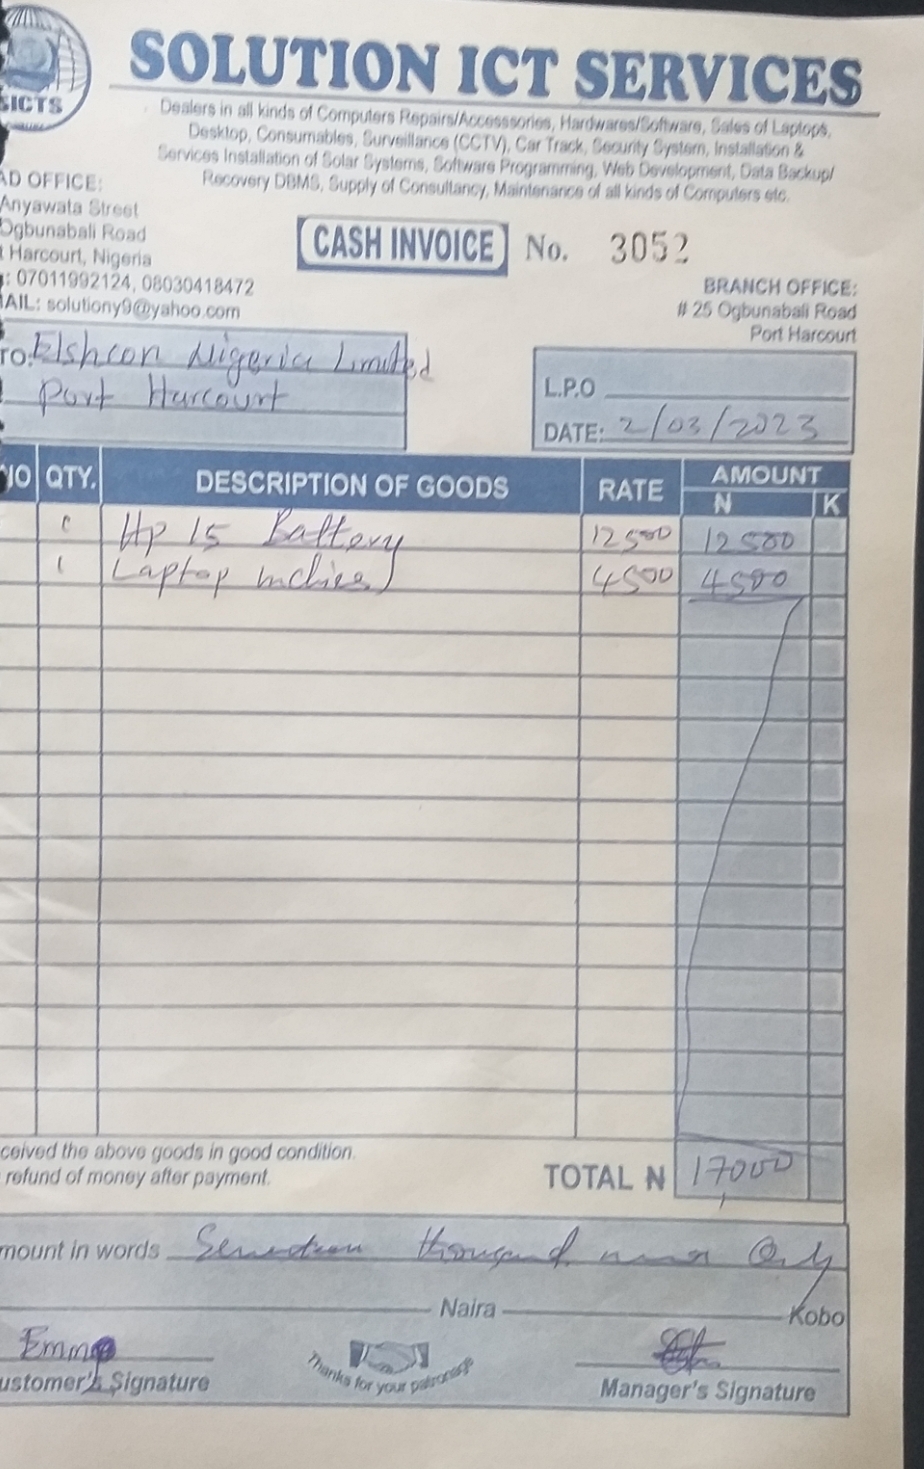 SICTS
SOLUTION ICT SERVICES
Dealers in all kinds of Computers Repairs/Accesssories, Hardwares/Software, Sales of Laptops,
Desktop, Consumables, Surveillance (CCTV), Car Track, Security System, Installation &
Services Installation of Solar Systems, Software Programming, Web Development, Data Backup/
Recovery DBMS, Supply of Consultancy, Maintenance of all kinds of Computers etc.
AD OFFICE:
Anyawata Street
Ogbunabali Road
t Harcourt, Nigeria
: 07011992124, 08030418472
AIL: solutiony9@yahoo.com
CASH INVOICE No. 3052
BRANCH OFFICE:
# 25 Ogbunabali Road
Port Harcourt
TO: Elshcon Nigeria Limited
Port Harcourt
L.P.O
DATE: 2/03/2023
NO QTY. DESCRIPTION OF GOODS RATE AMOUNT
N K
1 Hp 15 Battery 12500 12500
1 Laptop 4500 4500
ceived the above goods in good condition.
refund of money after payment.
TOTAL N 17000
mount in words Seventeen thousand naira Only
Naira Kobo
Emma
ustomer's Signature
Thanks for your patronage
Manager's Signature